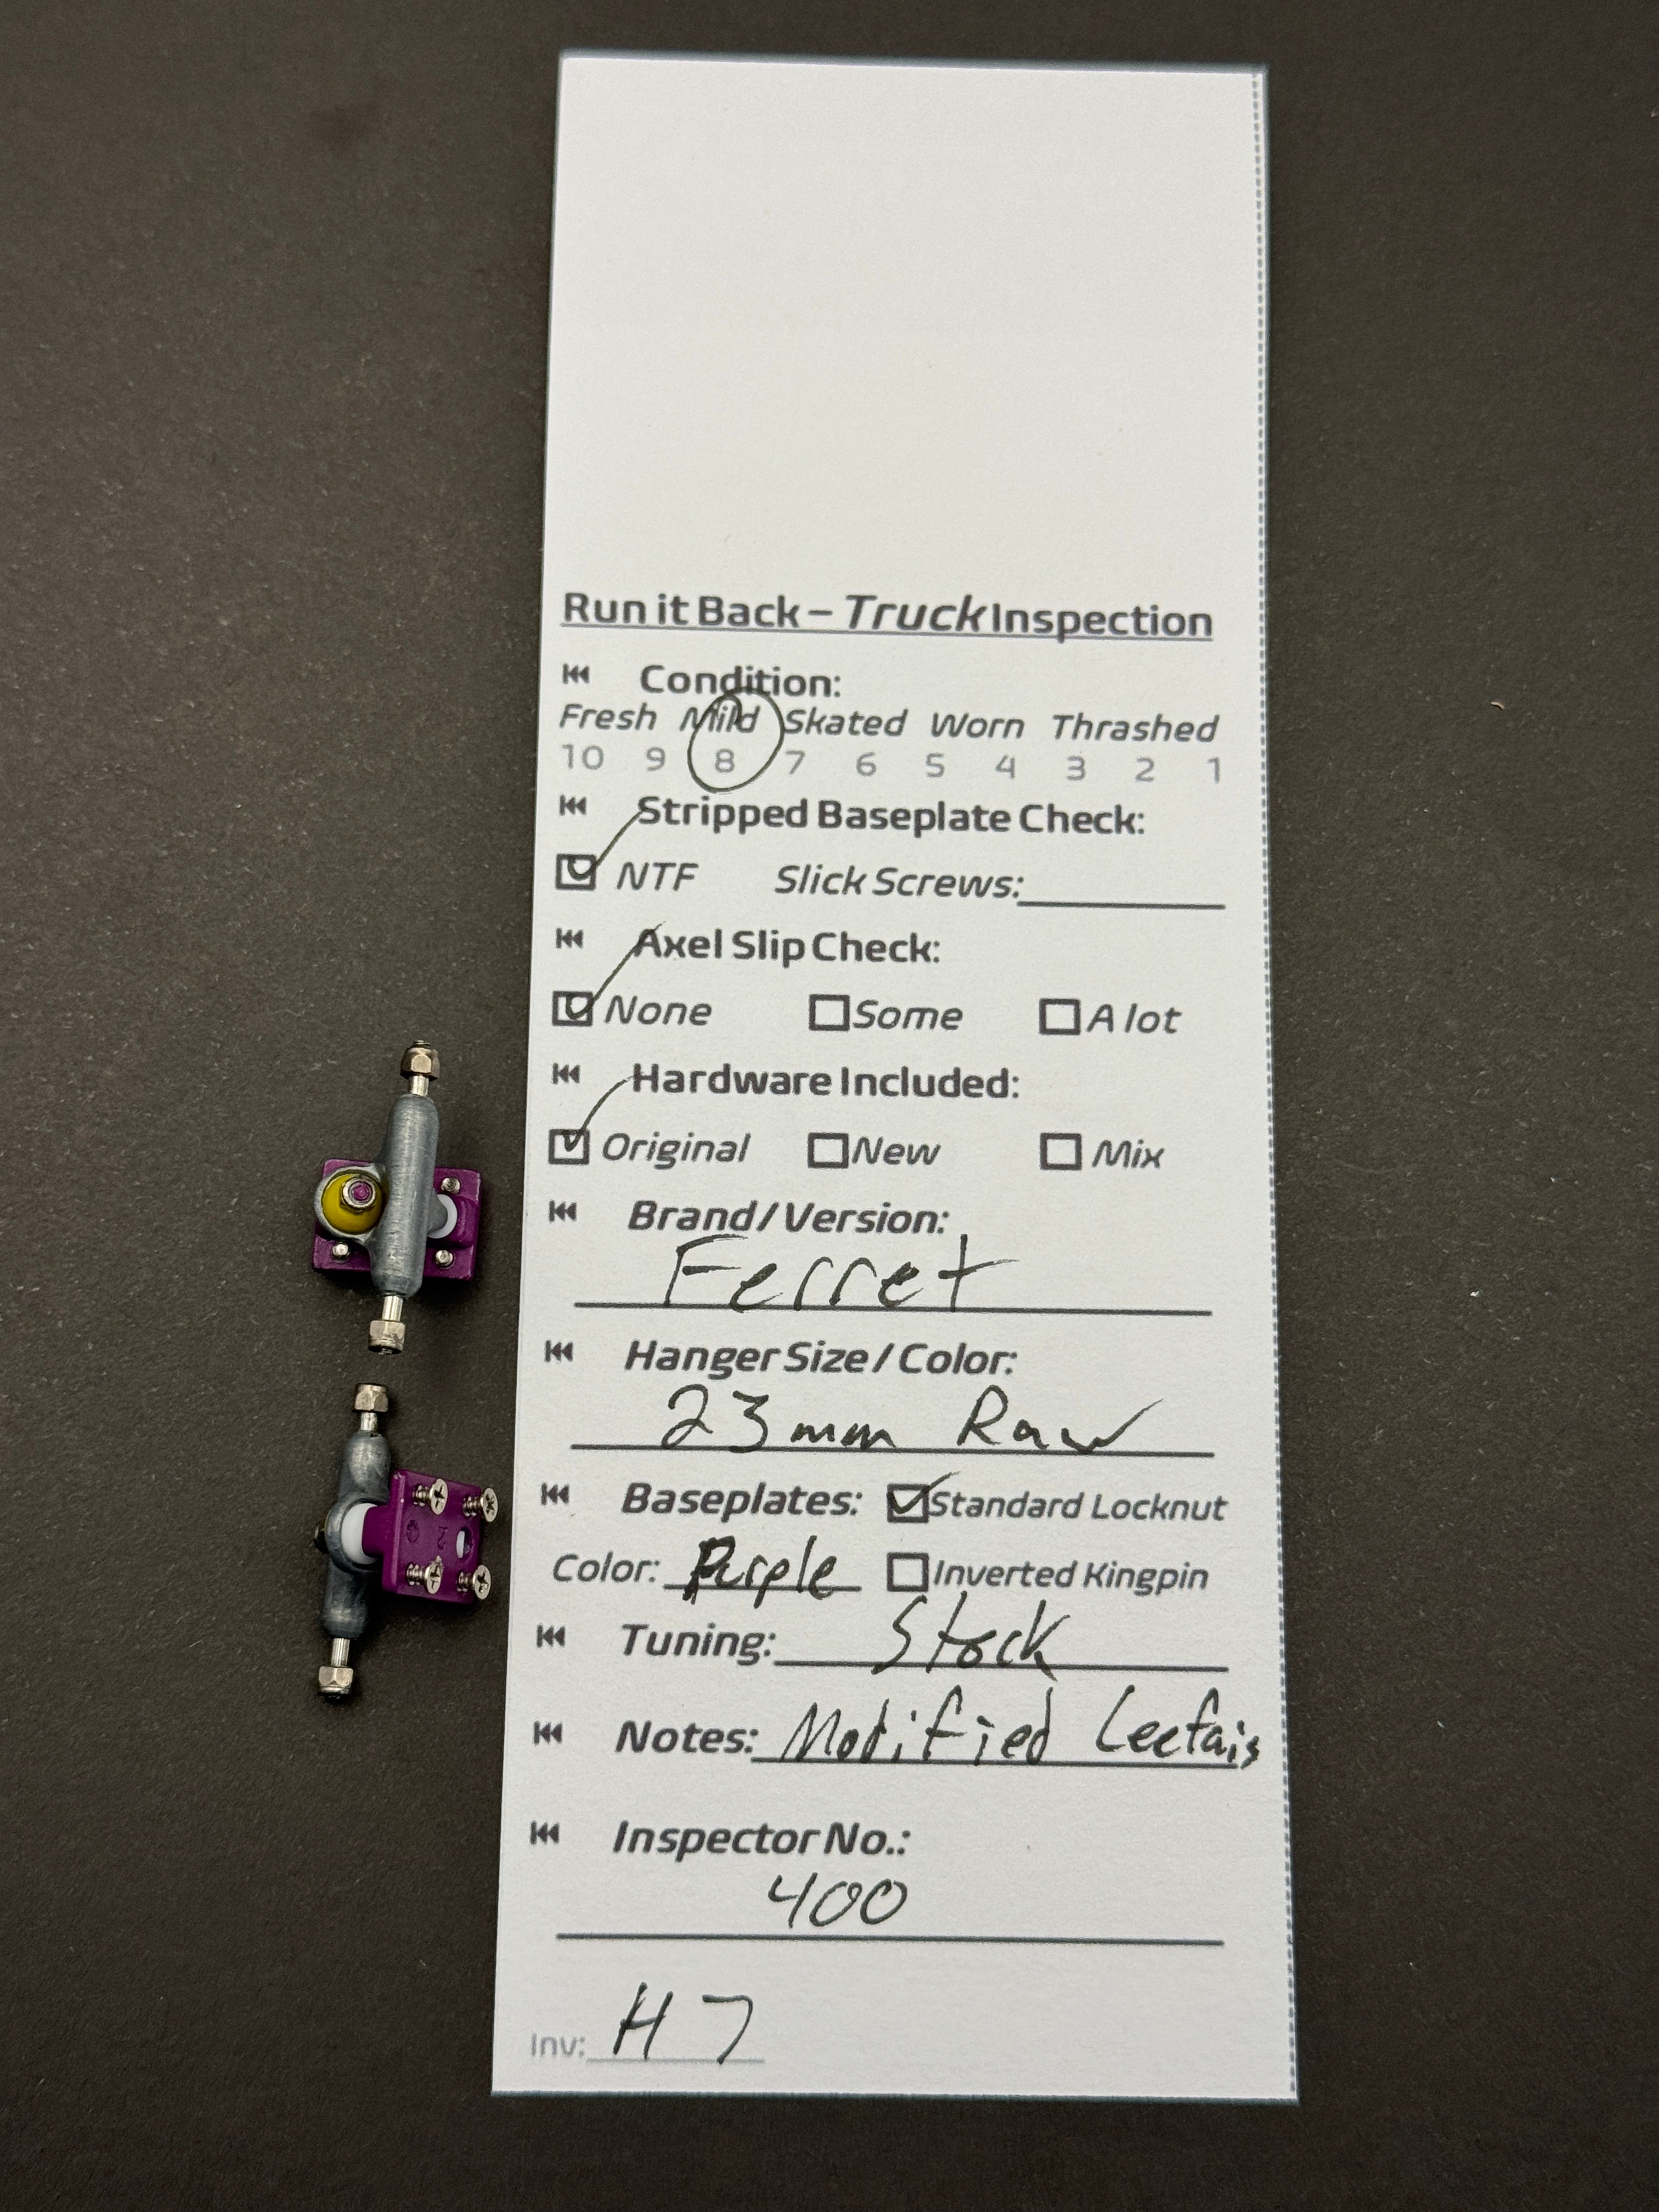 Run it Back – Truck Inspection
Condition:
Fresh Mild Skated Worn Thrashed
10 9 8 7 6 5 4 3 2 1
Stripped Baseplate Check:
NTF Slick Screws:
Axel Slip Check:
None Some A lot
Hardware Included:
Original New Mix
Brand/Version:
Ferret
Hanger Size / Color:
23mm Raw
Baseplates: Standard Locknut
Color: Purple Inverted Kingpin
Tuning: Stock
Notes: Modified Leefais
Inspector No.:
400
Inv: H7